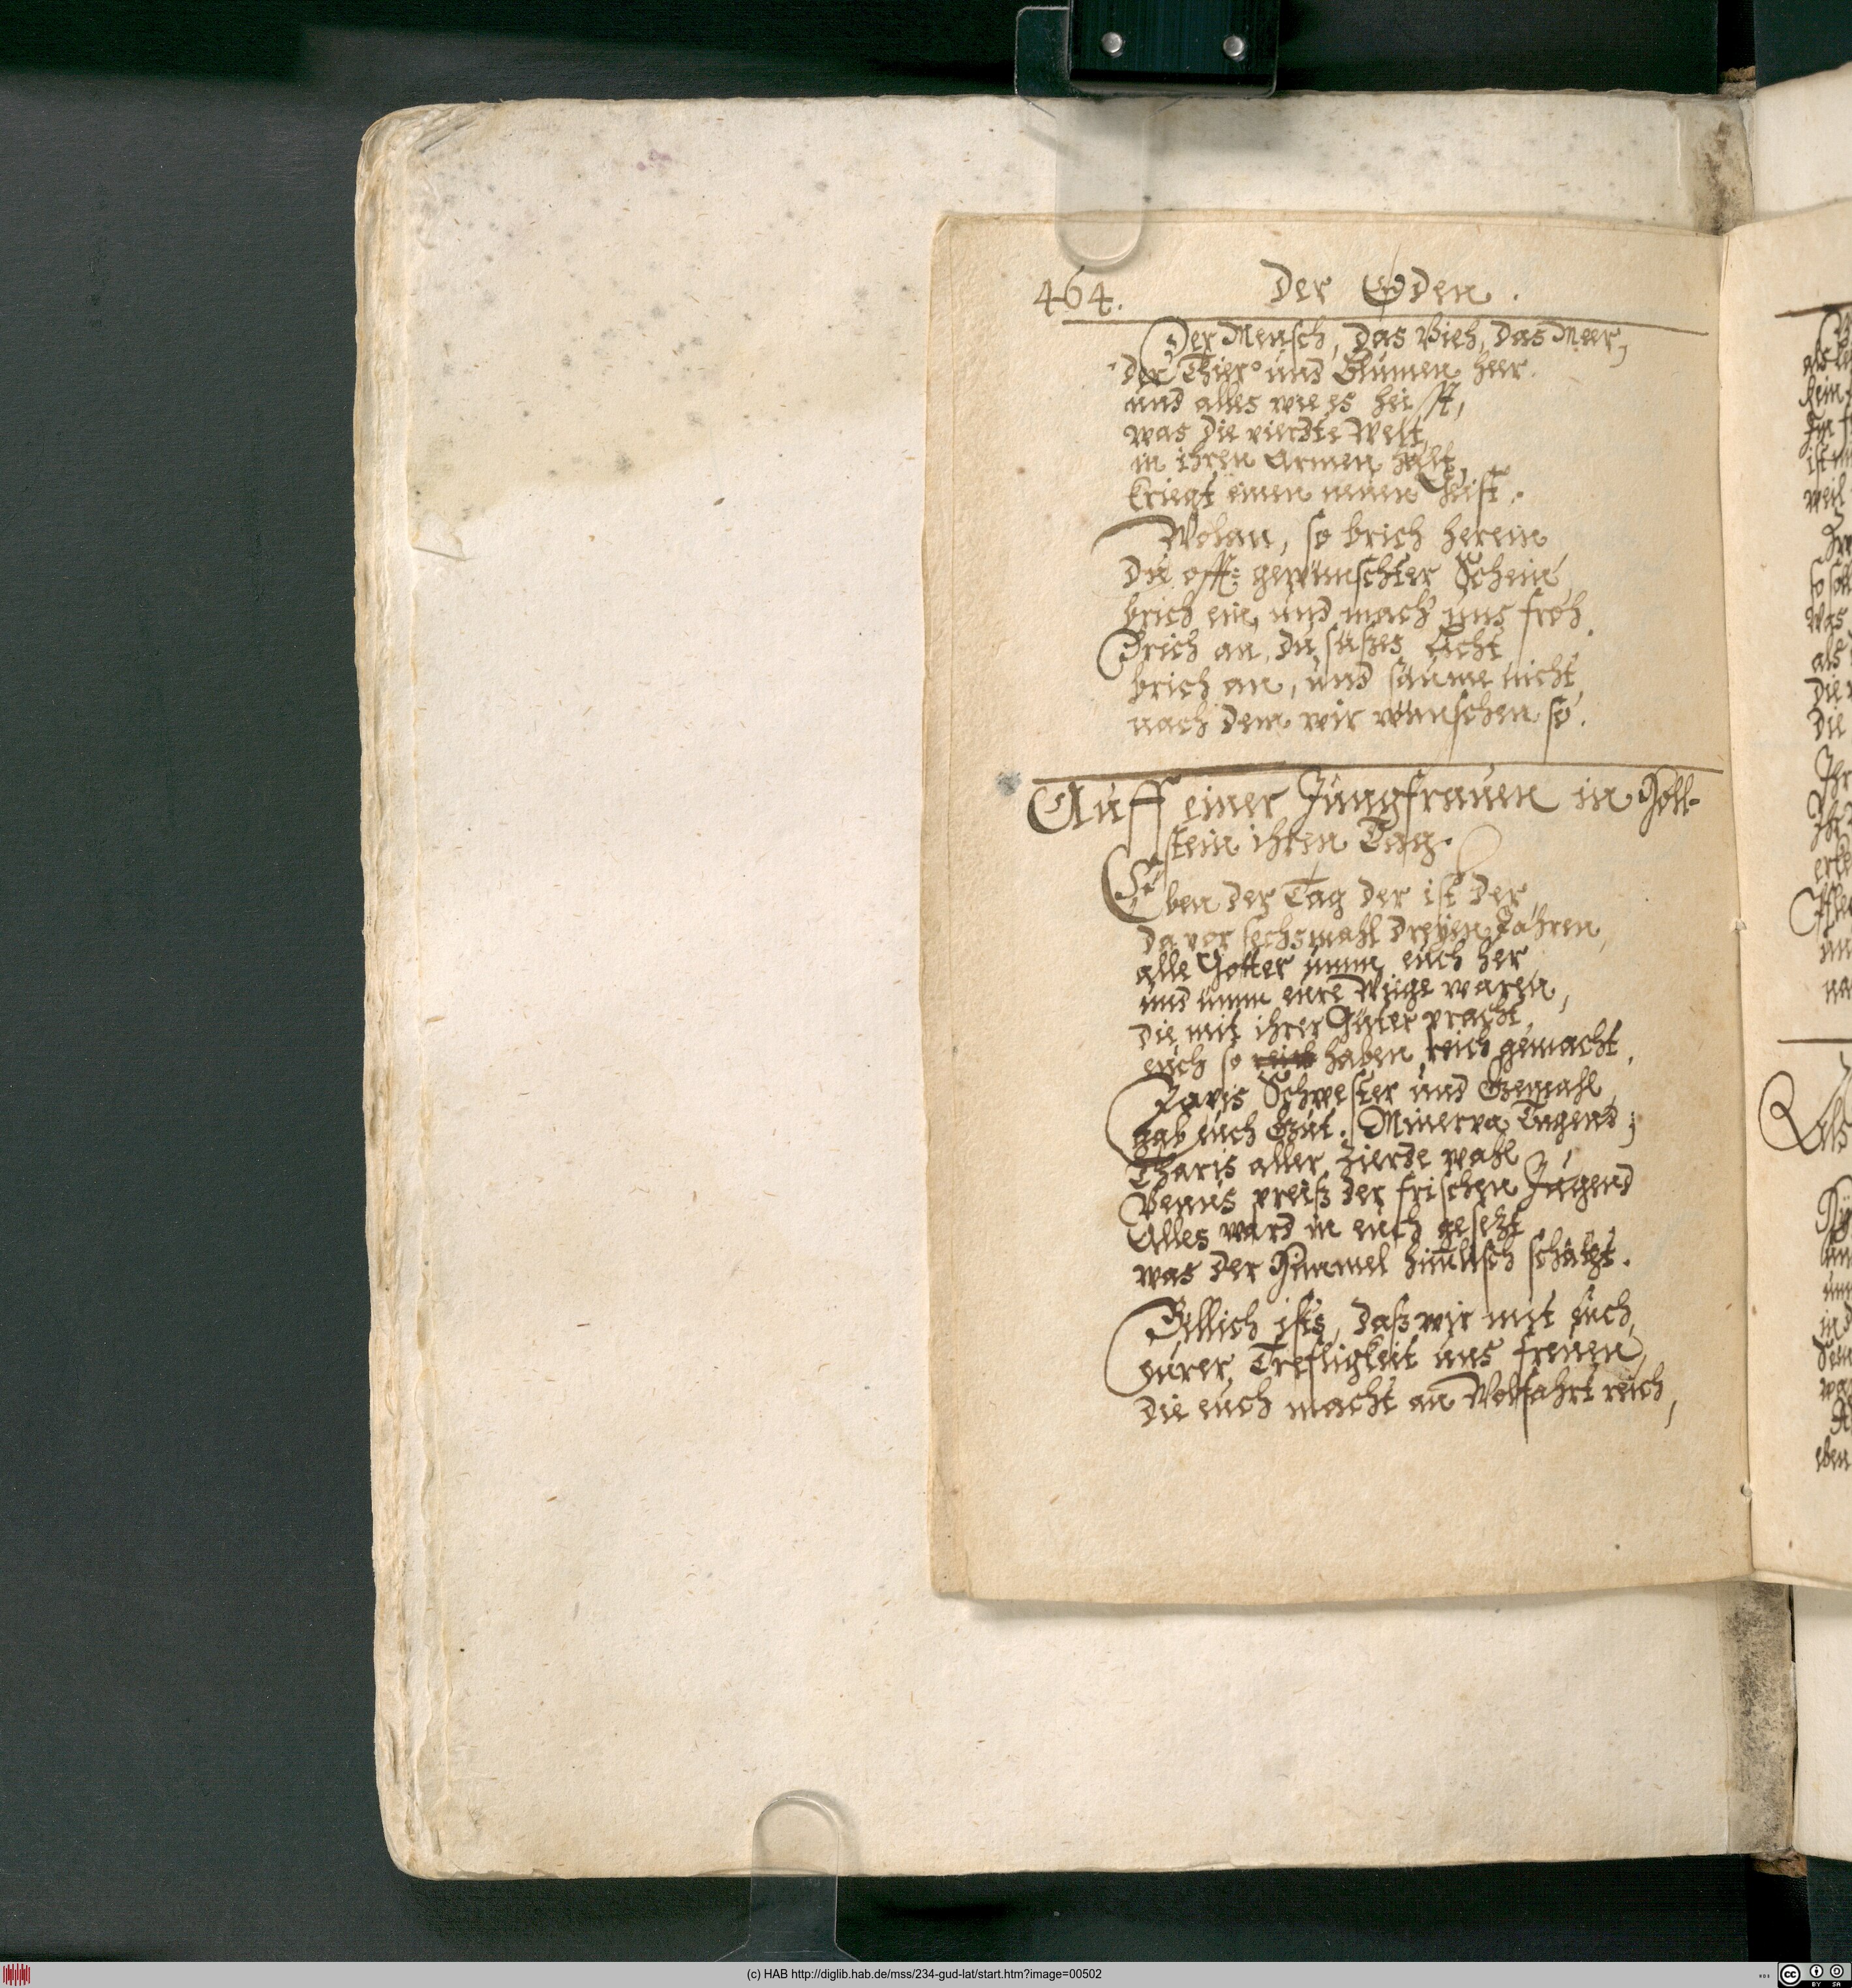 464. Der Oden.
Der Mensch, das Vieh, das Meer,
der Thier' und Blumen heer
und alles wie es heisst,
was die vierdte Welt,
in ihren Armen hällt,
kriegt einen neuen Geist.
Wolan, so brich herein
du offt: gewünschter Schein
brich ein, und mach uns froh.
Brich an, du süßes Licht
brich an, und säume nicht,
nach dem wir wünschen so.
Auff einer Jungfrauen in Holl-
stein ihren Tag.
Eben der Tag der ist der
da vor sechsmahl dreyen Jahren,
alle Götter umm euch her
und umm eure Wiege waren,
die mit ihrer Güter pracht,
euch so haben reich gemacht.
Zavis Schwester und Gemahl
gab euch Gut. Minerva Tugend;
Charis aller Zierde wahl
Venus preiß der frischen Jugend
Alles ward in euch gesetzt
was der Himmel him̅lisch schätzt.
Billich ists, daß wir mit euch,
eurer Trefligkeit uns freuen,
die euch macht an Wolfahrt reich,
(c) HAB http://diglib.hab.de/mss/234-gud-lat/start.htm?image=00502